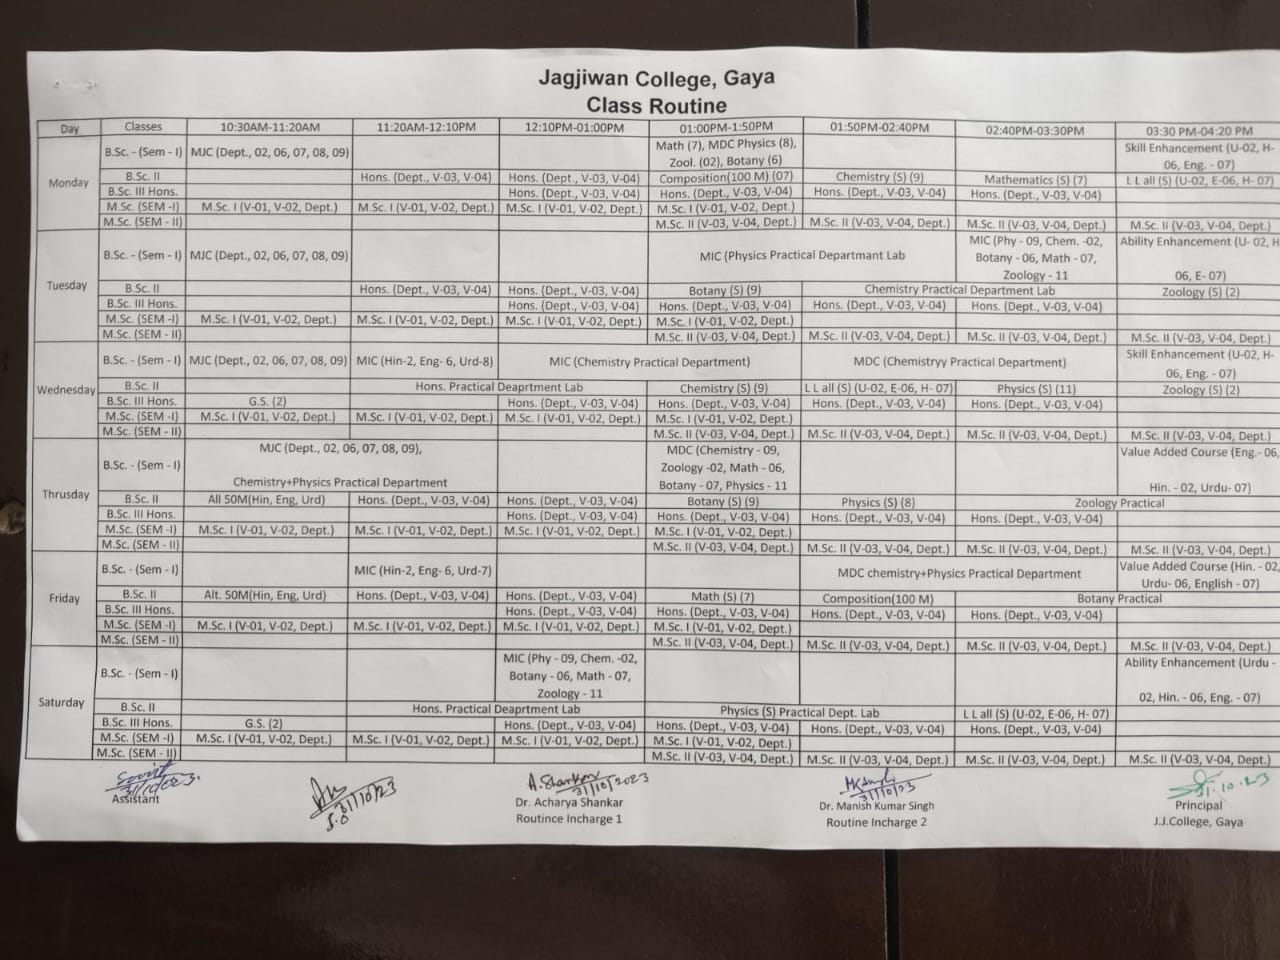 Jagjiwan College, Gaya
Class Routine
Day Classes 10:30AM-11:20AM 11:20AM-12:10PM 12:10PM-01:00PM 01:00PM-1:50PM 01:50PM-02:40PM 02:40PM-03:30PM 03:30 PM-04:20 PM
Monday
B.Sc. - (Sem - I) MJC (Dept., 02, 06, 07, 08, 09) Math (7), MDC Physics (8), Skill Enhancement (U-02, H-
Zool. (02), Botany (6) 06, Eng. - 07)
B.Sc. II Hons. (Dept., V-03, V-04) Hons. (Dept., V-03, V-04) Composition(100 M) (07) Chemistry (S) (9) Mathematics (S) (7) L L all (S) (U-02, E-06, H- 07)
B.Sc. III Hons. Hons. (Dept., V-03, V-04) Hons. (Dept., V-03, V-04) Hons. (Dept., V-03, V-04) Hons. (Dept., V-03, V-04)
M.Sc. (SEM -I) M.Sc. I (V-01, V-02, Dept.) M.Sc. I (V-01, V-02, Dept.) M.Sc. I (V-01, V-02, Dept.) M.Sc. I (V-01, V-02, Dept.)
M.Sc. (SEM - II) M.Sc. II (V-03, V-04, Dept.) M.Sc. II (V-03, V-04, Dept.) M.Sc. II (V-03, V-04, Dept.) M.Sc. II (V-03, V-04, Dept.)
Tuesday
B.Sc. - (Sem - I) MJC (Dept., 02, 06, 07, 08, 09) MIC (Physics Practical Departmant Lab MIC (Phy - 09, Chem. -02, Ability Enhancement (U- 02, H
Botany - 06, Math - 07,
Zoology - 11 06, E- 07)
B.Sc. II Hons. (Dept., V-03, V-04) Hons. (Dept., V-03, V-04) Botany (S) (9) Chemistry Practical Department Lab Zoology (S) (2)
B.Sc. III Hons. Hons. (Dept., V-03, V-04) Hons. (Dept., V-03, V-04) Hons. (Dept., V-03, V-04) Hons. (Dept., V-03, V-04)
M.Sc. (SEM -I) M.Sc. I (V-01, V-02, Dept.) M.Sc. I (V-01, V-02, Dept.) M.Sc. I (V-01, V-02, Dept.) M.Sc. I (V-01, V-02, Dept.)
M.Sc. (SEM - II) M.Sc. II (V-03, V-04, Dept.) M.Sc. II (V-03, V-04, Dept.) M.Sc. II (V-03, V-04, Dept.) M.Sc. II (V-03, V-04, Dept.)
Wednesday
B.Sc. - (Sem - I) MJC (Dept., 02, 06, 07, 08, 09) MIC (Hin-2, Eng- 6, Urd-8) MIC (Chemistry Practical Department) MDC (Chemistryy Practical Department) Skill Enhancement (U-02, H-
06, Eng. - 07)
B.Sc. II Hons. Practical Deaprtment Lab Chemistry (S) (9) L L all (S) (U-02, E-06, H- 07) Physics (S) (11) Zoology (S) (2)
B.Sc. III Hons. G.S. (2) Hons. (Dept., V-03, V-04) Hons. (Dept., V-03, V-04) Hons. (Dept., V-03, V-04) Hons. (Dept., V-03, V-04)
M.Sc. (SEM -I) M.Sc. I (V-01, V-02, Dept.) M.Sc. I (V-01, V-02, Dept.) M.Sc. I (V-01, V-02, Dept.) M.Sc. I (V-01, V-02, Dept.)
M.Sc. (SEM - II) M.Sc. II (V-03, V-04, Dept.) M.Sc. II (V-03, V-04, Dept.) M.Sc. II (V-03, V-04, Dept.) M.Sc. II (V-03, V-04, Dept.)
Thrusday
B.Sc. - (Sem - I) MJC (Dept., 02, 06, 07, 08, 09), MDC (Chemistry - 09, Value Added Course (Eng.- 06,
Zoology -02, Math - 06,
Chemistry+Physics Practical Department Botany - 07, Physics - 11 Hin. - 02, Urdu- 07)
B.Sc. II All 50M(Hin, Eng, Urd) Hons. (Dept., V-03, V-04) Hons. (Dept., V-03, V-04) Botany (S) (9) Physics (S) (8) Zoology Practical
B.Sc. III Hons. Hons. (Dept., V-03, V-04) Hons. (Dept., V-03, V-04) Hons. (Dept., V-03, V-04) Hons. (Dept., V-03, V-04)
M.Sc. (SEM -I) M.Sc. I (V-01, V-02, Dept.) M.Sc. I (V-01, V-02, Dept.) M.Sc. I (V-01, V-02, Dept.) M.Sc. I (V-01, V-02, Dept.)
M.Sc. (SEM - II) M.Sc. II (V-03, V-04, Dept.) M.Sc. II (V-03, V-04, Dept.) M.Sc. II (V-03, V-04, Dept.) M.Sc. II (V-03, V-04, Dept.)
Friday
B.Sc. - (Sem - I) MIC (Hin-2, Eng- 6, Urd-7) MDC chemistry+Physics Practical Department Value Added Course (Hin. - 02,
Urdu- 06, English - 07)
B.Sc. II Alt. 50M(Hin, Eng, Urd) Hons. (Dept., V-03, V-04) Hons. (Dept., V-03, V-04) Math (S) (7) Composition(100 M) Botany Practical
B.Sc. III Hons. Hons. (Dept., V-03, V-04) Hons. (Dept., V-03, V-04) Hons. (Dept., V-03, V-04) Hons. (Dept., V-03, V-04)
M.Sc. (SEM -I) M.Sc. I (V-01, V-02, Dept.) M.Sc. I (V-01, V-02, Dept.) M.Sc. I (V-01, V-02, Dept.) M.Sc. I (V-01, V-02, Dept.)
M.Sc. (SEM - II) M.Sc. II (V-03, V-04, Dept.) M.Sc. II (V-03, V-04, Dept.) M.Sc. II (V-03, V-04, Dept.) M.Sc. II (V-03, V-04, Dept.)
Saturday
B.Sc. - (Sem - I) MIC (Phy - 09, Chem. -02, Ability Enhancement (Urdu -
Botany - 06, Math - 07,
Zoology - 11 02, Hin. - 06, Eng. - 07)
B.Sc. II Hons. Practical Deaprtment Lab Physics (S) Practical Dept. Lab L L all (S) (U-02, E-06, H- 07)
B.Sc. III Hons. G.S. (2) Hons. (Dept., V-03, V-04) Hons. (Dept., V-03, V-04) Hons. (Dept., V-03, V-04) Hons. (Dept., V-03, V-04)
M.Sc. (SEM -I) M.Sc. I (V-01, V-02, Dept.) M.Sc. I (V-01, V-02, Dept.) M.Sc. I (V-01, V-02, Dept.) M.Sc. I (V-01, V-02, Dept.)
M.Sc. (SEM - II) M.Sc. II (V-03, V-04, Dept.) M.Sc. II (V-03, V-04, Dept.) M.Sc. II (V-03, V-04, Dept.) M.Sc. II (V-03, V-04, Dept.)
A. Shankar
31/10/2023 31/10/23 31/10/2023 31/10/23 31.10.23
Assistant Dr. Acharya Shankar Dr. Manish Kumar Singh Principal
Routince Incharge 1 Routine Incharge 2 J.J.College, Gaya